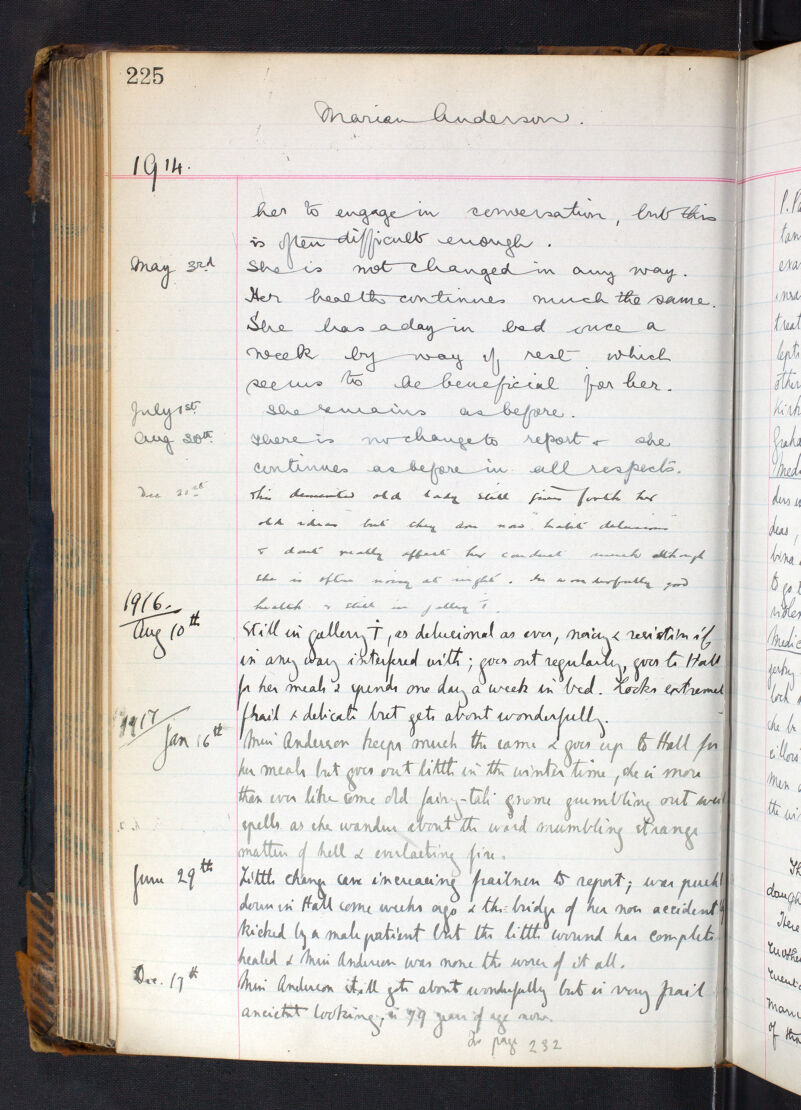 225
Marian Anderson.
1914.
her to engage in conversation, but this
is often difficult enough.
May 3rd She is not changed in any way.
Her health continues much the same.
She has a day in bed once a
week by way of rest which
seems to be beneficial for her.
July 1st She remains as before.
Aug 30th There is no change to report & she
continues as before in all respects.
Dec 21st This demented old lady still gives forth her
old ideas but they are now "habit delusions"
& don't really affect her conduct much although
she is often noisy at night. In wonderfully good
health & still in gallery I.
1916.
Aug 10th Still in gallery I, as delusional as ever, noisy & resistive if
in any way interfered with; goes out regularly, goes to Hall
for her meals & spends one day a week in bed. Looks extremel
frail & delicate but gets about wonderfully.
1917
Jan 16th Miss Anderson keeps much the same & goes up to Hall for
her meals but goes out little in the winter time, she is more
than ever like some old fairy-tale gnome grumbling out
spells as she wanders about the ward mumbling strange
matters of hell & everlasting fire.
June 29th Little change save increasing frailness to report; was
down in Hall some weeks ago & the bridge of her nose accident
kicked by a male patient but the little wound has complete
healed & Miss Anderson was none the worse of it all.
Dec. 17th Miss Anderson still gets about wonderfully but is very frail
ancient looking, is 79 years of age now.
To page 232